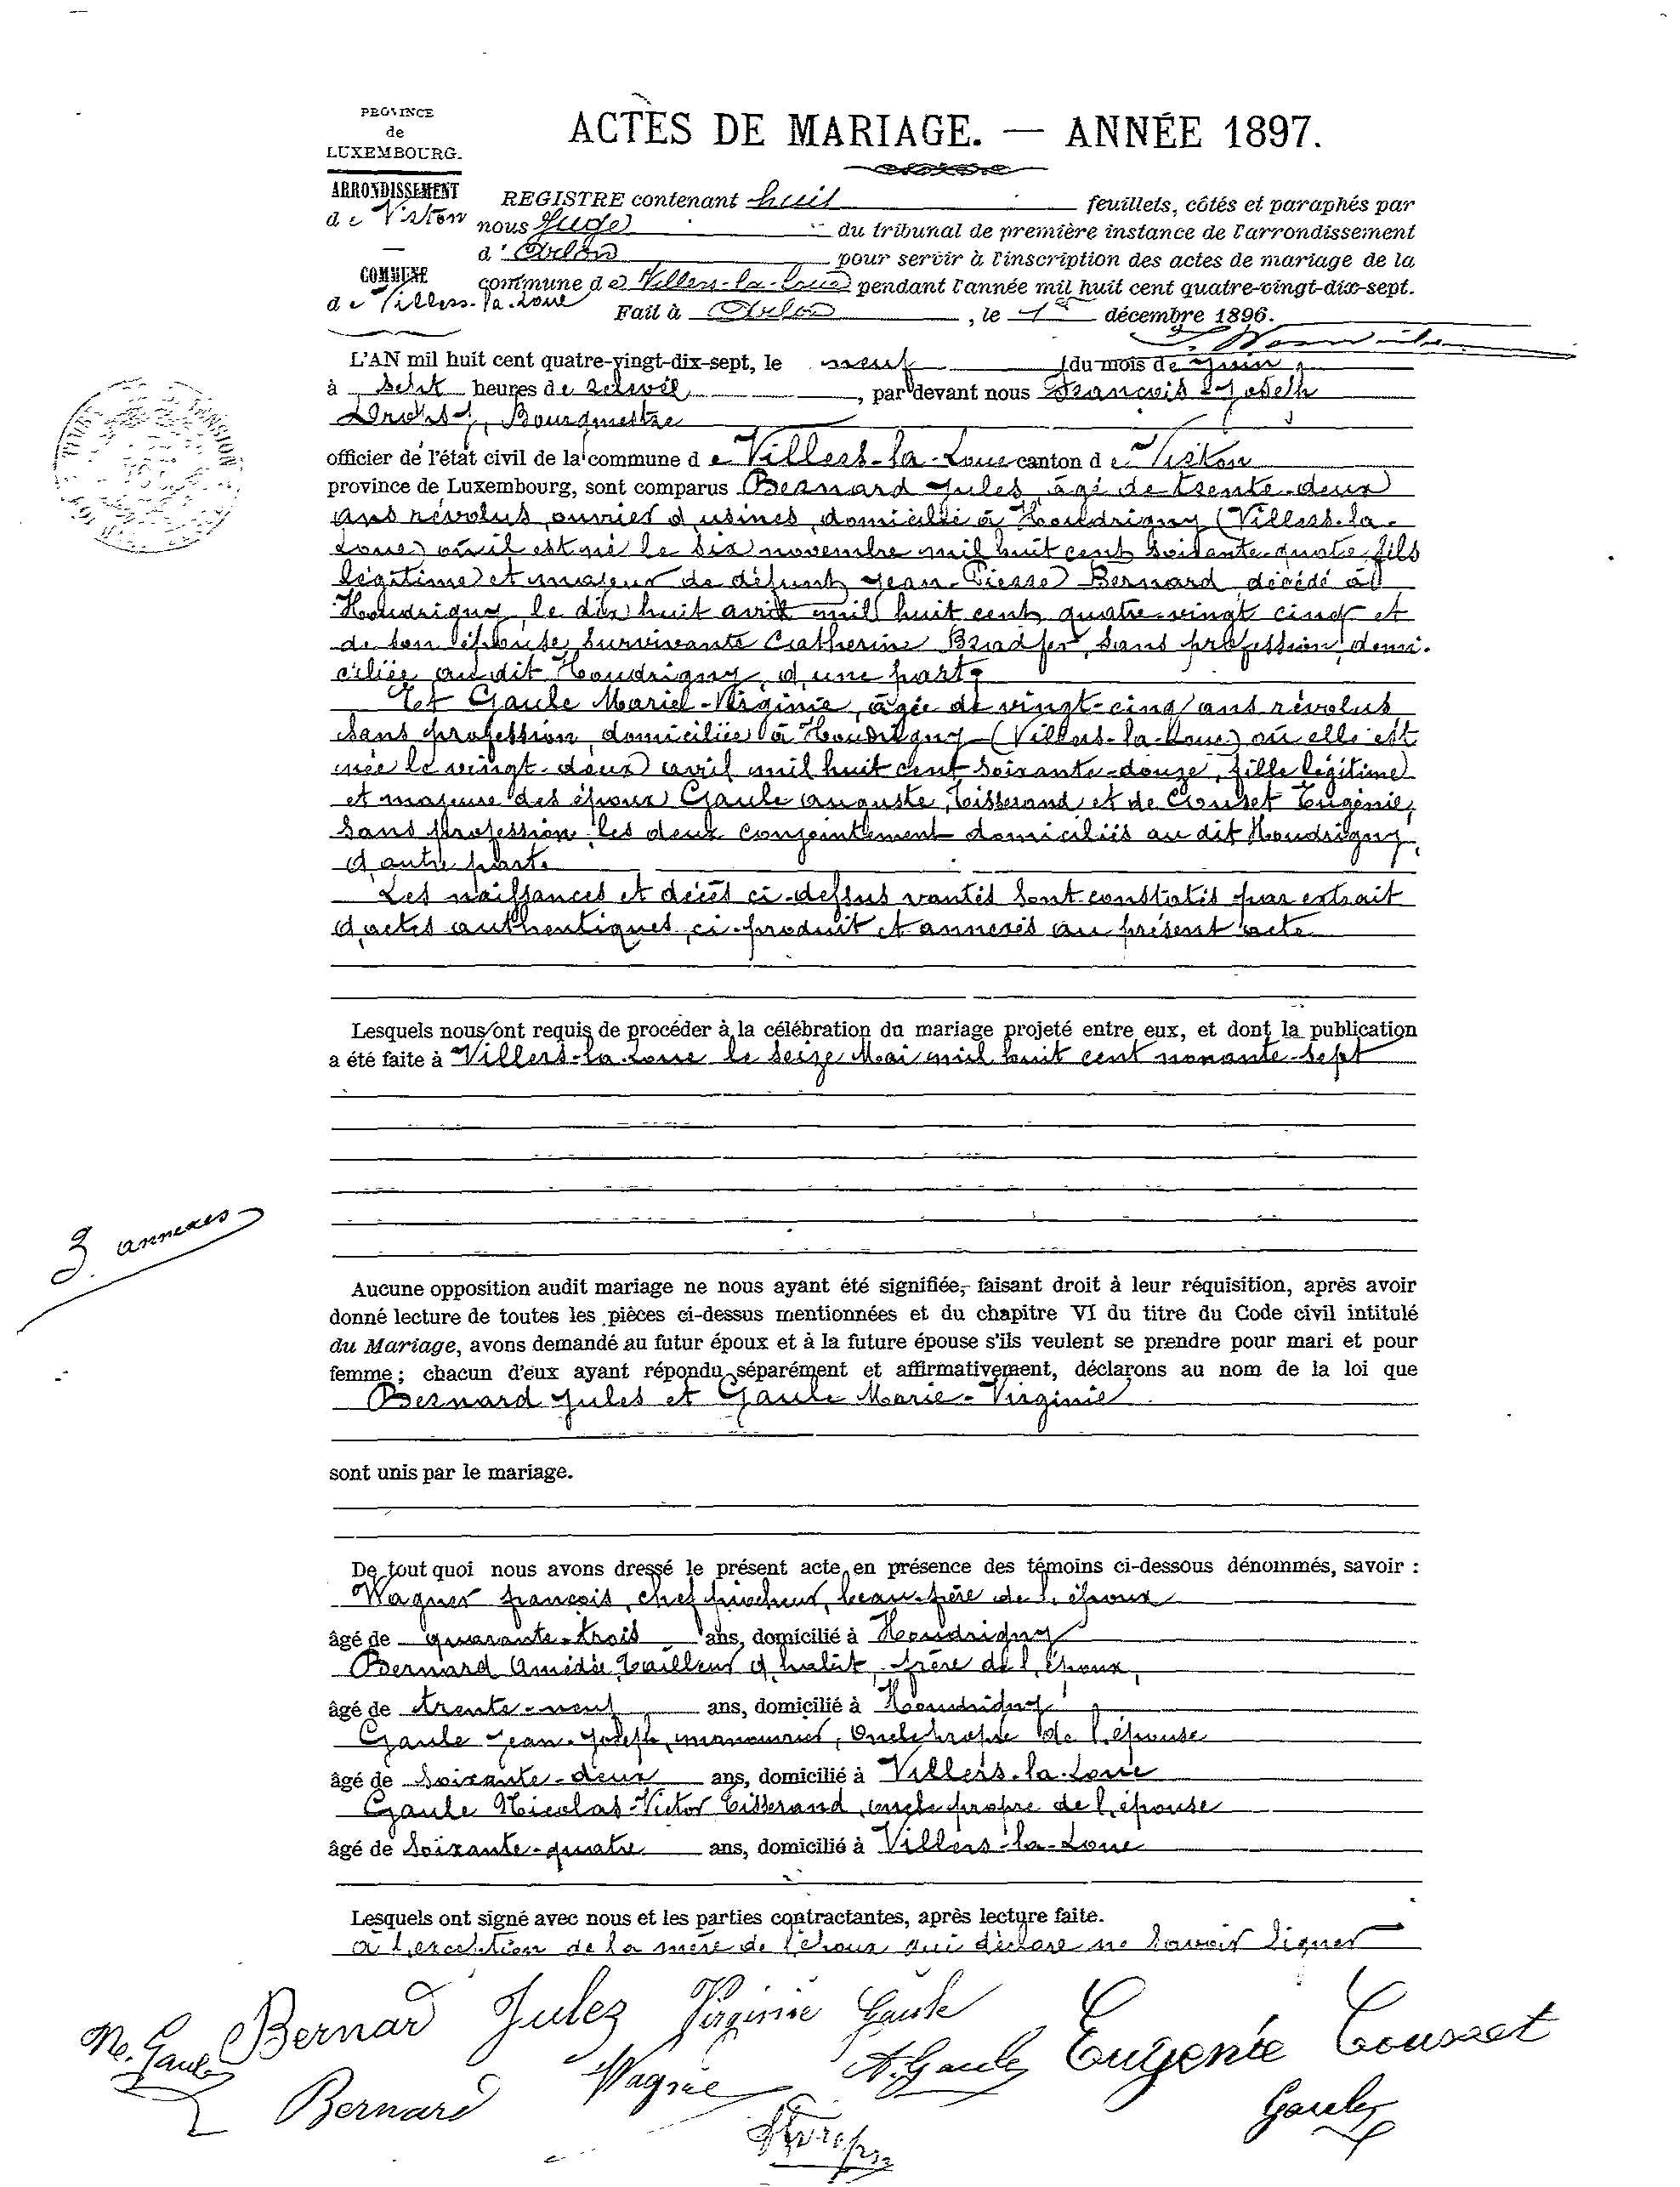 PROVINCE
de
LUXEMBOURG.
ACTES DE MARIAGE. — ANNÉE 1897.
ARRONDISSEMENT
de Virton
COMMUNE
de Villers-la-Loue
REGISTRE contenant huit feuillets, côtés et paraphés par
nous Juge du tribunal de première instance de l'arrondissement
d'Arlon pour servir à l'inscription des actes de mariage de la
commune de Villers-la-Loue pendant l'année mil huit cent quatre-vingt-dix-sept.
Fait à Arlon, le 1er décembre 1896.
L'AN mil huit cent quatre-vingt-dix-sept, le neuf du mois de Juin,
à sept heures de relevée, par devant nous François Joseph
Bourgmestre
officier de l'état civil de la commune de Villers-la-Loue canton de Virton
province de Luxembourg, sont comparus Bernard Jules, âgé de trente-deux
ans révolus, ouvrier d'usines, domicilié à Houdrigny (Villers-la-
Loue) où il est né le six novembre mil huit cent soixante-quatre, fils
légitime et majeur de défunt Jean-Pierre Bernard, décédé à
Houdrigny, le dix huit avril mil huit cent quatre-vingt cinq et
de son épouse survivante Catherine Bradfer, sans profession, domi-
ciliée au dit Houdrigny, d'une part.
Et Gaule Marie-Virginie, âgée de vingt-cinq ans révolus,
sans profession, domiciliée à Houdrigny (Villers-la-Loue) où elle est
née le vingt-deux avril mil huit cent soixante-douze, fille légitime
et majeure des époux Gaule Auguste, tisserand et de Couset Eugénie,
sans profession, les deux conjointement domiciliés au dit Houdrigny,
d'autre part.
Les naissances et décès ci-dessus vantés sont constatés par extrait
d'actes authentiques, ci-produit et annexés au présent acte
Lesquels nous ont requis de procéder à la célébration du mariage projeté entre eux, et dont la publication
a été faite à Villers-la-Loue le seize Mai mil huit cent nonante-sept
3 annexes
Aucune opposition audit mariage ne nous ayant été signifiée, faisant droit à leur réquisition, après avoir
donné lecture de toutes les pièces ci-dessus mentionnées et du chapitre VI du titre du Code civil intitulé
du Mariage, avons demandé au futur époux et à la future épouse s'ils veulent se prendre pour mari et pour
femme ; chacun d'eux ayant répondu séparément et affirmativement, déclarons au nom de la loi que
Bernard Jules et Gaule Marie-Virginie
sont unis par le mariage.
De tout quoi nous avons dressé le présent acte en présence des témoins ci-dessous dénommés, savoir :
Wagner françois, chef piocheur, beau-frère de l'époux
âgé de quarante-trois ans, domicilié à Houdrigny
Bernard Amédée, tailleur d'habit, frère de l'époux,
âgé de trente-neuf ans, domicilié à Houdrigny
Gaule Jean-Joseph, manouvrier, oncle propre de l'épouse
âgé de soixante-deux ans, domicilié à Villers-la-Loue
Gaule Nicolas-Victor tisserand, oncle propre de l'épouse
âgé de soixante-quatre ans, domicilié à Villers-la-Loue
Lesquels ont signé avec nous et les parties contractantes, après lecture faite.
à l'exception de la mère de l'époux qui déclare ne savoir signer
Bernard Jules Virginie Gaule Eugenie Cousset
N. Gaule Bernard Wagner A. Gaule Gaule